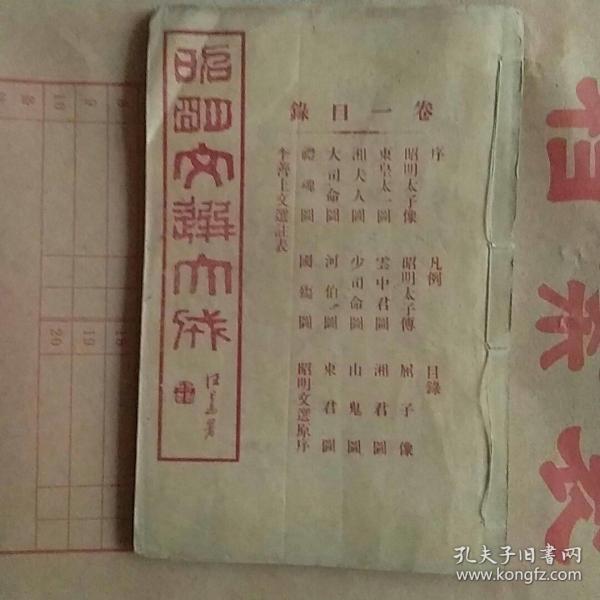 卷一目錄
序　凡例　目錄
昭明太子像　昭明太子傳　屈子像
東皇太一圖　雲中君圖　湘君圖
湘夫人圖　少司命圖　山鬼圖
大司命圖　河伯圖　東君圖
禮魂圖　國殤圖　昭明文選原序
李善上文選註表
昭明文選大成
档案袋
10
9
8
20
19
18
孔夫子旧书网
www.kongfz.com